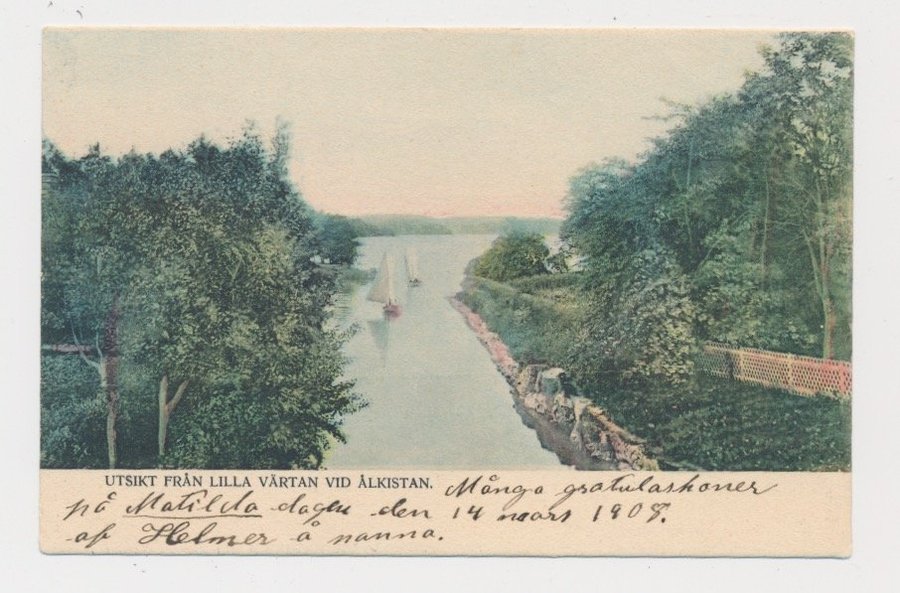 UTSIKT FRÅN LILLA VÄRTAN VID ÅLKISTAN. Många gratulashoner
på Matilda dagen den 14 mars 1908.
af Helmer å nanna.